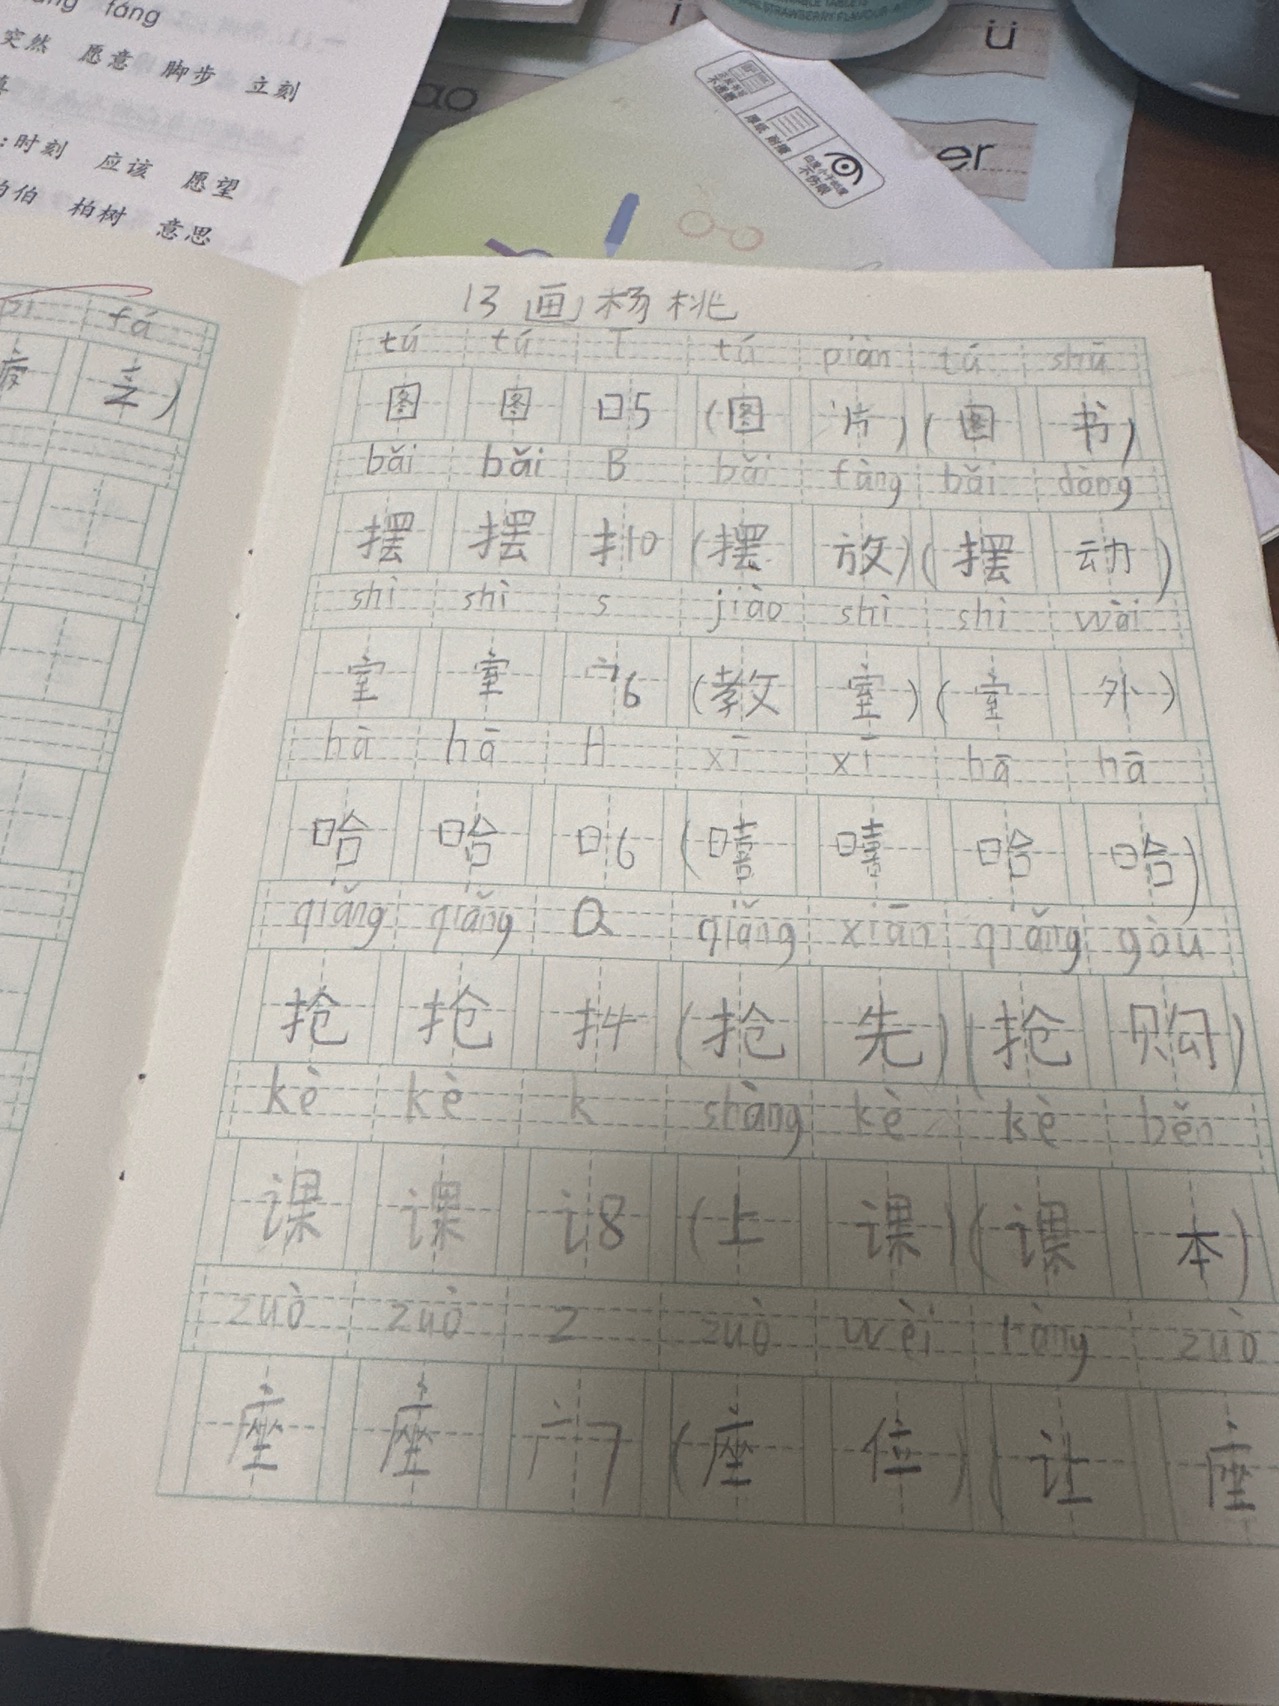 fáng
突然 愿意 脚步 立刻
时刻 应该 愿望
伯 柏树 意思
ao
ü
er
fá
13 画杨桃
tú tú T tú piàn tú shū
图 图 口5 (图 片) (图 书)
bǎi bǎi B bǎi fàng bǎi dòng
摆 摆 扌10 (摆 放) (摆 动)
shì shì s jiào shì shì wài
室 室 宀6 (教 室) (室 外)
hā hā H xī xī hā hā
哈 哈 口6 (嘻 嘻 哈 哈)
qiǎng qiǎng Q qiǎng xiān qiǎng gòu
抢 抢 扌4 (抢 先) (抢 购)
kè kè k shàng kè kè běn
课 课 讠8 (上 课) (课 本)
zuò zuò z zuò wèi ràng zuò
座 座 广7 (座 位) (让 座